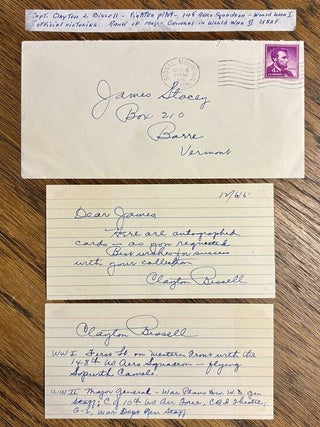 Capt. Clayton L. Bissell - Fighter pilot - 148 Aero Squadron - World War I
official victories. Rank of Major General in World War II USAF.
James Stacey
Box 210
Barre
Vermont
12/6/61
Dear James
Here are autographed
cards - as you requested
Best wishes for success
with your collection
Clayton Bissell
Clayton Bissell
WW I First Lt on Western Front with the
148th US Aero Squadron - flying
Sopwith Camels
WW II Major General - War Plans Div. W.D. Gen
Staff; C.G. 10th US Air Force, CBI Theater,
G-2, War Dept Gen Staff